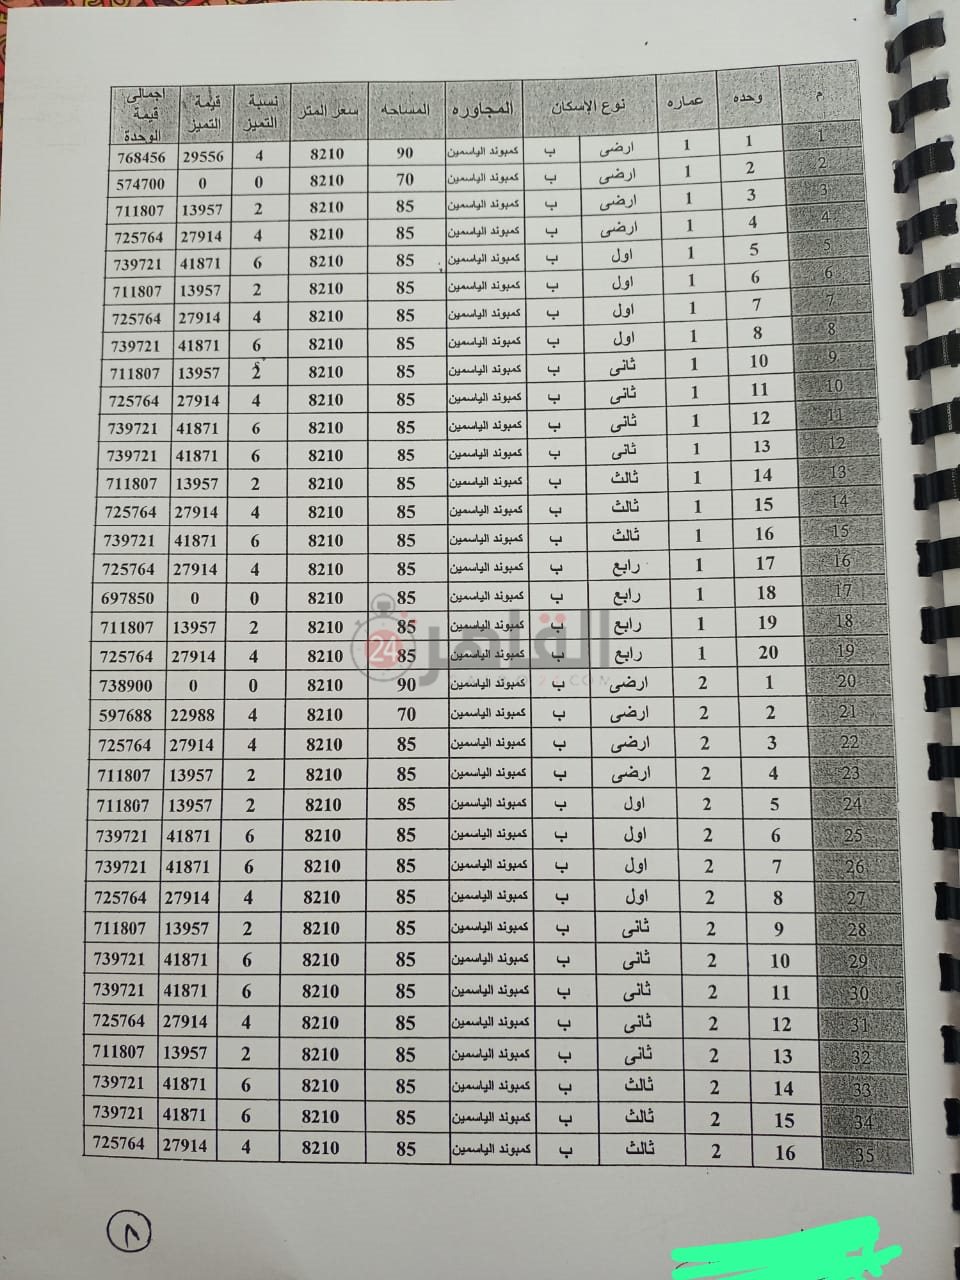 م وحده عماره نوع الإسكان المجاوره المساحه سعر المتر نسبة التميز قيمة التميز اجمالى قيمة الوحدة
1 1 1 ارضى ب كمبوند الياسمين 90 8210 4 29556 768456
2 2 1 ارضى ب كمبوند الياسمين 70 8210 0 0 574700
3 3 1 ارضى ب كمبوند الياسمين 85 8210 2 13957 711807
4 4 1 ارضى ب كمبوند الياسمين 85 8210 4 27914 725764
5 5 1 اول ب كمبوند الياسمين 85 8210 6 41871 739721
6 6 1 اول ب كمبوند الياسمين 85 8210 2 13957 711807
7 7 1 اول ب كمبوند الياسمين 85 8210 4 27914 725764
8 8 1 اول ب كمبوند الياسمين 85 8210 6 41871 739721
9 10 1 ثانى ب كمبوند الياسمين 85 8210 2 13957 711807
10 11 1 ثانى ب كمبوند الياسمين 85 8210 4 27914 725764
11 12 1 ثانى ب كمبوند الياسمين 85 8210 6 41871 739721
12 13 1 ثانى ب كمبوند الياسمين 85 8210 6 41871 739721
13 14 1 ثالث ب كمبوند الياسمين 85 8210 2 13957 711807
14 15 1 ثالث ب كمبوند الياسمين 85 8210 4 27914 725764
15 16 1 ثالث ب كمبوند الياسمين 85 8210 6 41871 739721
16 17 1 رابع ب كمبوند الياسمين 85 8210 4 27914 725764
17 18 1 رابع ب كمبوند الياسمين 85 8210 0 0 697850
18 19 1 رابع ب كمبوند الياسمين 85 8210 2 13957 711807
19 20 1 رابع ب كمبوند الياسمين 85 8210 4 27914 725764
20 1 2 ارضى ب كمبوند الياسمين 90 8210 0 0 738900
21 2 2 ارضى ب كمبوند الياسمين 70 8210 4 22988 597688
22 3 2 ارضى ب كمبوند الياسمين 85 8210 4 27914 725764
23 4 2 ارضى ب كمبوند الياسمين 85 8210 2 13957 711807
24 5 2 اول ب كمبوند الياسمين 85 8210 2 13957 711807
25 6 2 اول ب كمبوند الياسمين 85 8210 6 41871 739721
26 7 2 اول ب كمبوند الياسمين 85 8210 6 41871 739721
27 8 2 اول ب كمبوند الياسمين 85 8210 4 27914 725764
28 9 2 ثانى ب كمبوند الياسمين 85 8210 2 13957 711807
29 10 2 ثانى ب كمبوند الياسمين 85 8210 6 41871 739721
30 11 2 ثانى ب كمبوند الياسمين 85 8210 6 41871 739721
31 12 2 ثانى ب كمبوند الياسمين 85 8210 4 27914 725764
32 13 2 ثانى ب كمبوند الياسمين 85 8210 2 13957 711807
33 14 2 ثالث ب كمبوند الياسمين 85 8210 6 41871 739721
34 15 2 ثالث ب كمبوند الياسمين 85 8210 6 41871 739721
35 16 2 ثالث ب كمبوند الياسمين 85 8210 4 27914 725764
القاهرة 24
٨